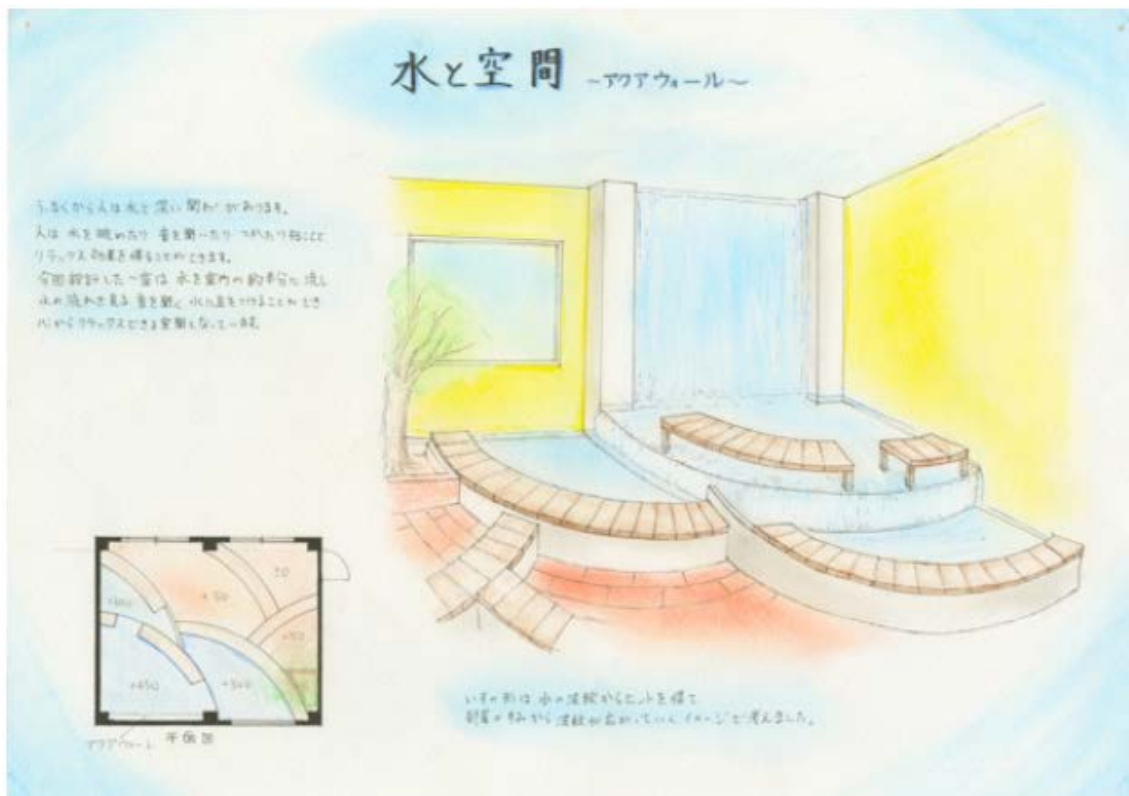 水と空間 ～アクアウォール～
人は水と深い関わりがあります。
人は 水を眺めたり 音を聞いたり つかったり することで
リラックス効果を得ることができます。
今回設計した一室は 水を室内の約半分に流し
水の流れを見る 音を聞く 水に足をつけることができ
心からリラックスできる空間となっています。
+150
+450
+300
アクアウォール 平面図
いすの形は 水の波紋からヒントを得て
部屋の隅から 波紋が広がっていくイメージで考えました。